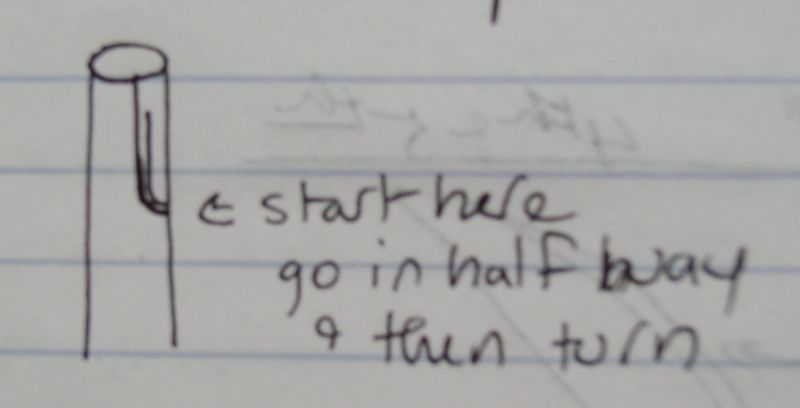 ← start here
go in half way
& then turn